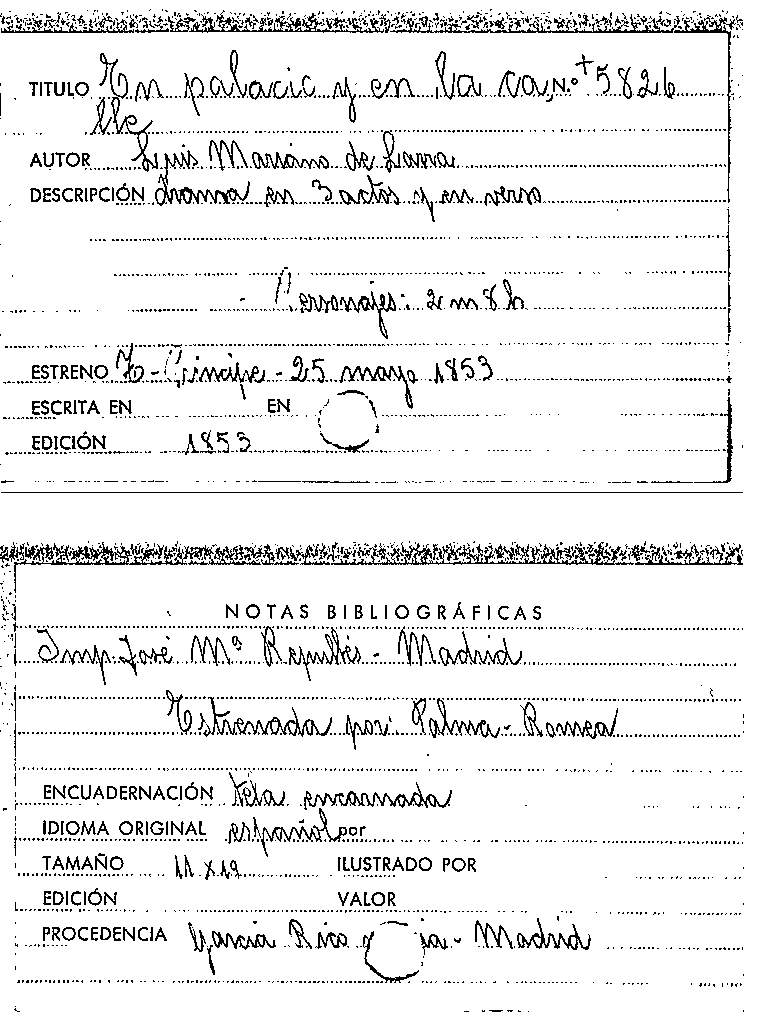 TITULO En palacio y en la ca N.º + 5826
lle
AUTOR Luis Mariano de Larra
DESCRIPCIÓN drama en 3 actos y en verso
- Personajes: 2 m 8 h
ESTRENO T - Principe - 25 mayo 1853
ESCRITA EN EN
EDICIÓN 1853
NOTAS BIBLIOGRÁFICAS
Imp José Mª Repullés - Madrid
Estrenada por: Palma - Romea
ENCUADERNACIÓN tela encarnada
IDIOMA ORIGINAL español por
TAMAÑO 11 x 19 ILUSTRADO POR
EDICIÓN VALOR
PROCEDENCIA García Rico y ia - Madrid